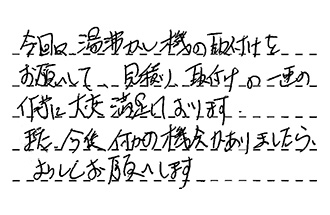 今回は湯沸かし機の取付けを
お願いして、見積り、取付けの一連の
作業に大変満足しております。
また、今後何かの機会がありましたら、
よろしくお願いします。